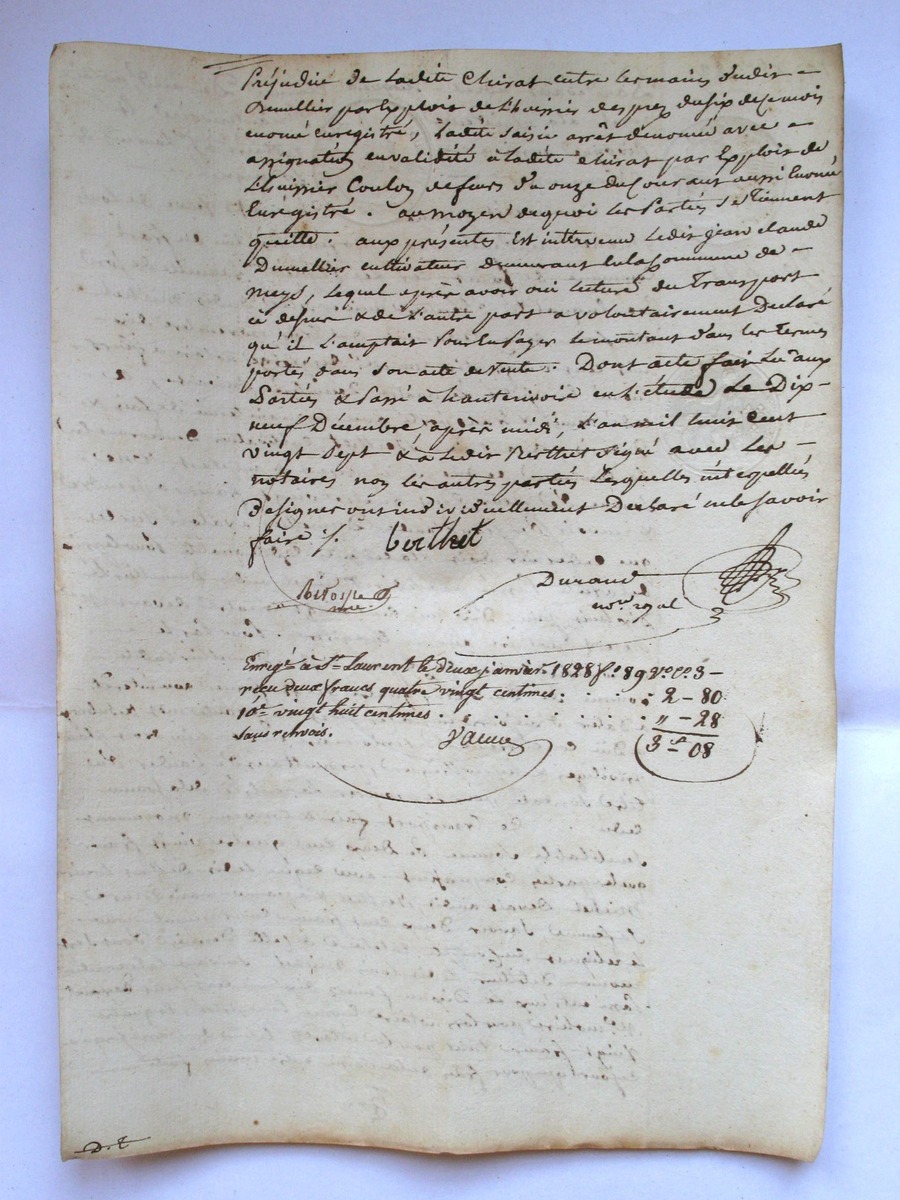 Préjudice de Ladite Chirat entre les mains dudit
Dumellier par Exploit de L'huissier desprez du six de ce mois
enoncé Enregistré, Ladite Saisie arrêt dénoncée avec
assignation en validité à Ladite chirat par Exploit de
L'huissier Coulon de feurs du onze du Courant aussi Enoncé
Enregistré. au moyen de quoi les Parties se Tiennent
quitte. aux présentes Est intervenu Ledit jean claude
Dumellier cultivateur demeurant en la Commune de
meys, lequel après avoir oui lecture du Transport
ci dessus & de L'autre part a volontairement Declaré
qu'il L'acceptait Pour En Payer le montant dans les Termes
portés dans son acte de vente. Dont acte fait Lu aux
Parties & Passé à hauterivoire en L'étude Le Dix-
neuf Décembre après midi, L'an mil huit Cent
vingt Sept & a Ledit Berthet Signé avec Les
notaires non les autres parties Lesquelles interpellées
de signer ont individuellement Declaré ne le Savoir
faire ./. berthet
Durand
nore. royal
nre.
Enregé à St. Laurent le deux janvier 1828 fo. 89 Vo. Co. 3 -
reçu deux francs quatre vingt centimes : 2 - 80
10e. vingt huit centimes. " - 28
sans renvois. 3 f 08
D. t